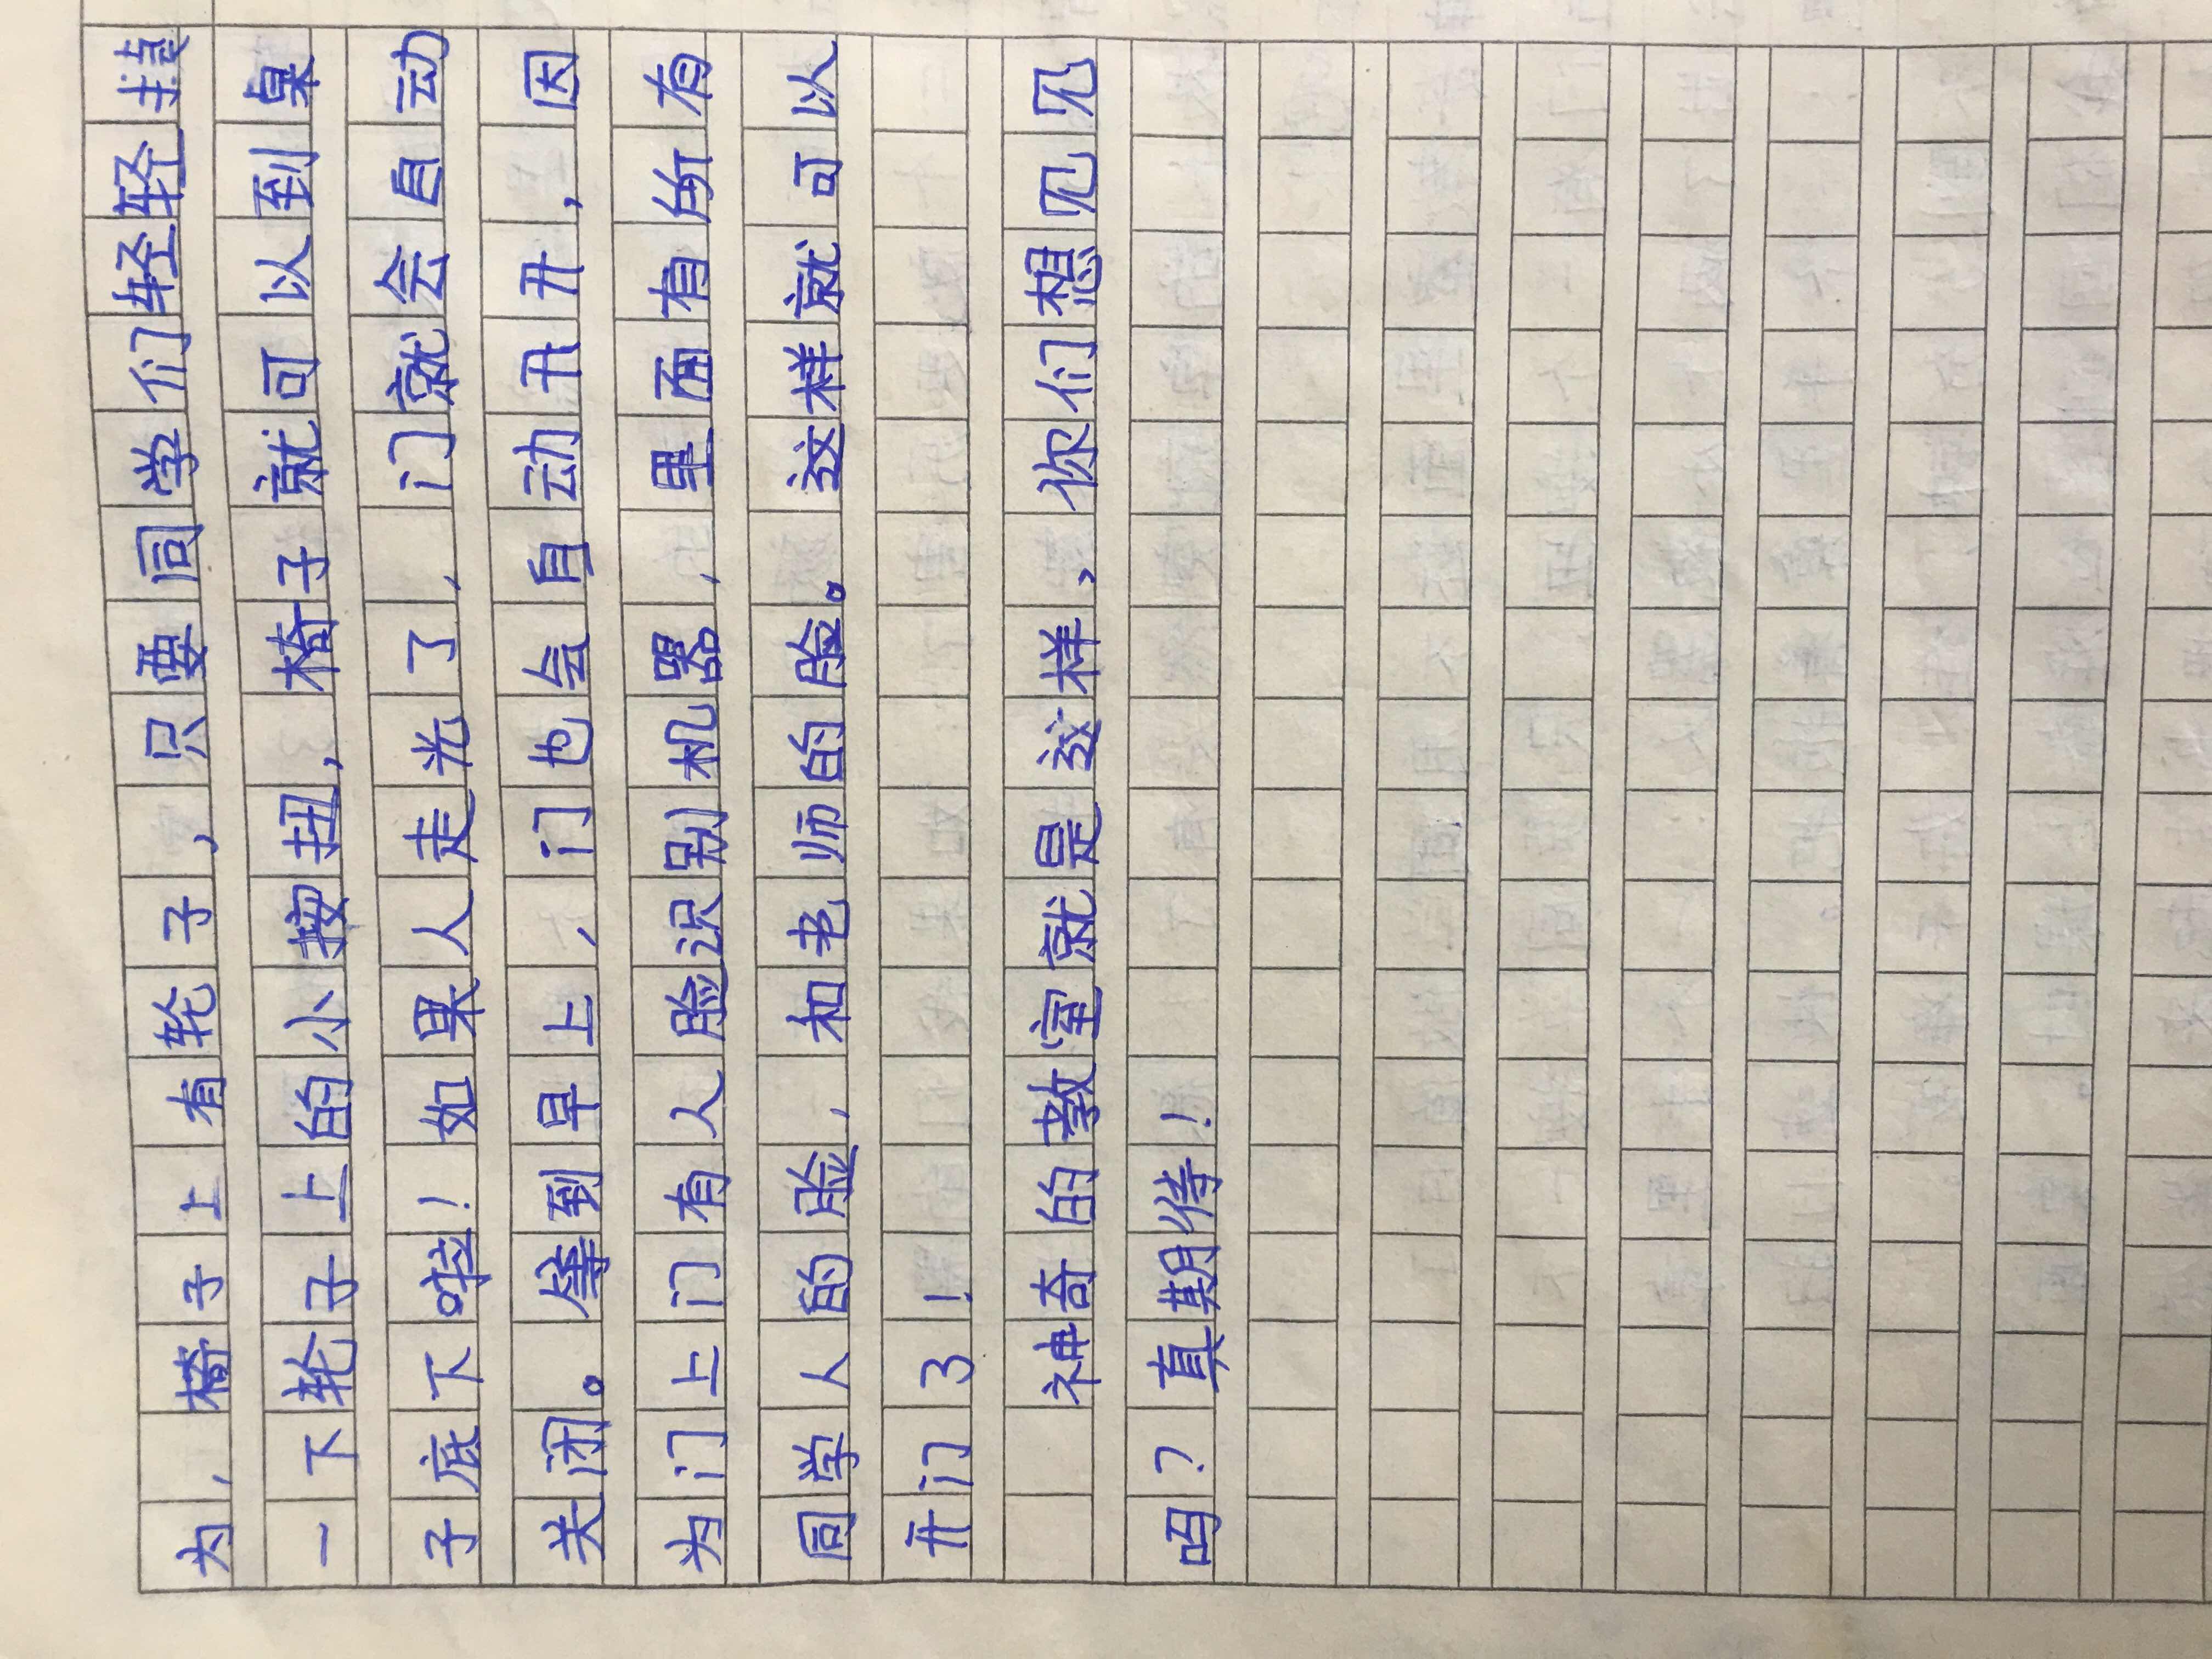 为，椅子上有轮子，只要同学们轻轻
一下轮子上的小按扭，椅子就可以到桌
子底下啦！如果人走光了，门就会自动
关闭。等到早上，门也会自动开开，因
为门上门有人脸识别机器，里面有所有
同学人的脸，和老师的脸。这样就可以
开门了！
神奇的教室就是这样，你们想见见
吗？真期待！